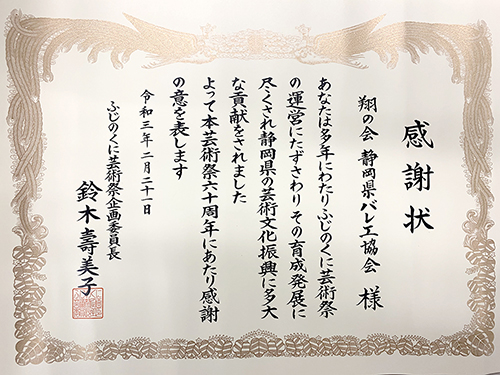 感謝状
翔の会 静岡県バレエ協会 様
あなたは多年にわたりふじのくに芸術祭
の運営にたずさわり その育成発展に
尽くされ静岡県の芸術文化振興に多大
な貢献をされました
よって本芸術祭六十周年にあたり感謝
の意を表します
令和三年二月二十一日
ふじのくに芸術祭企画委員長
鈴木壽美子